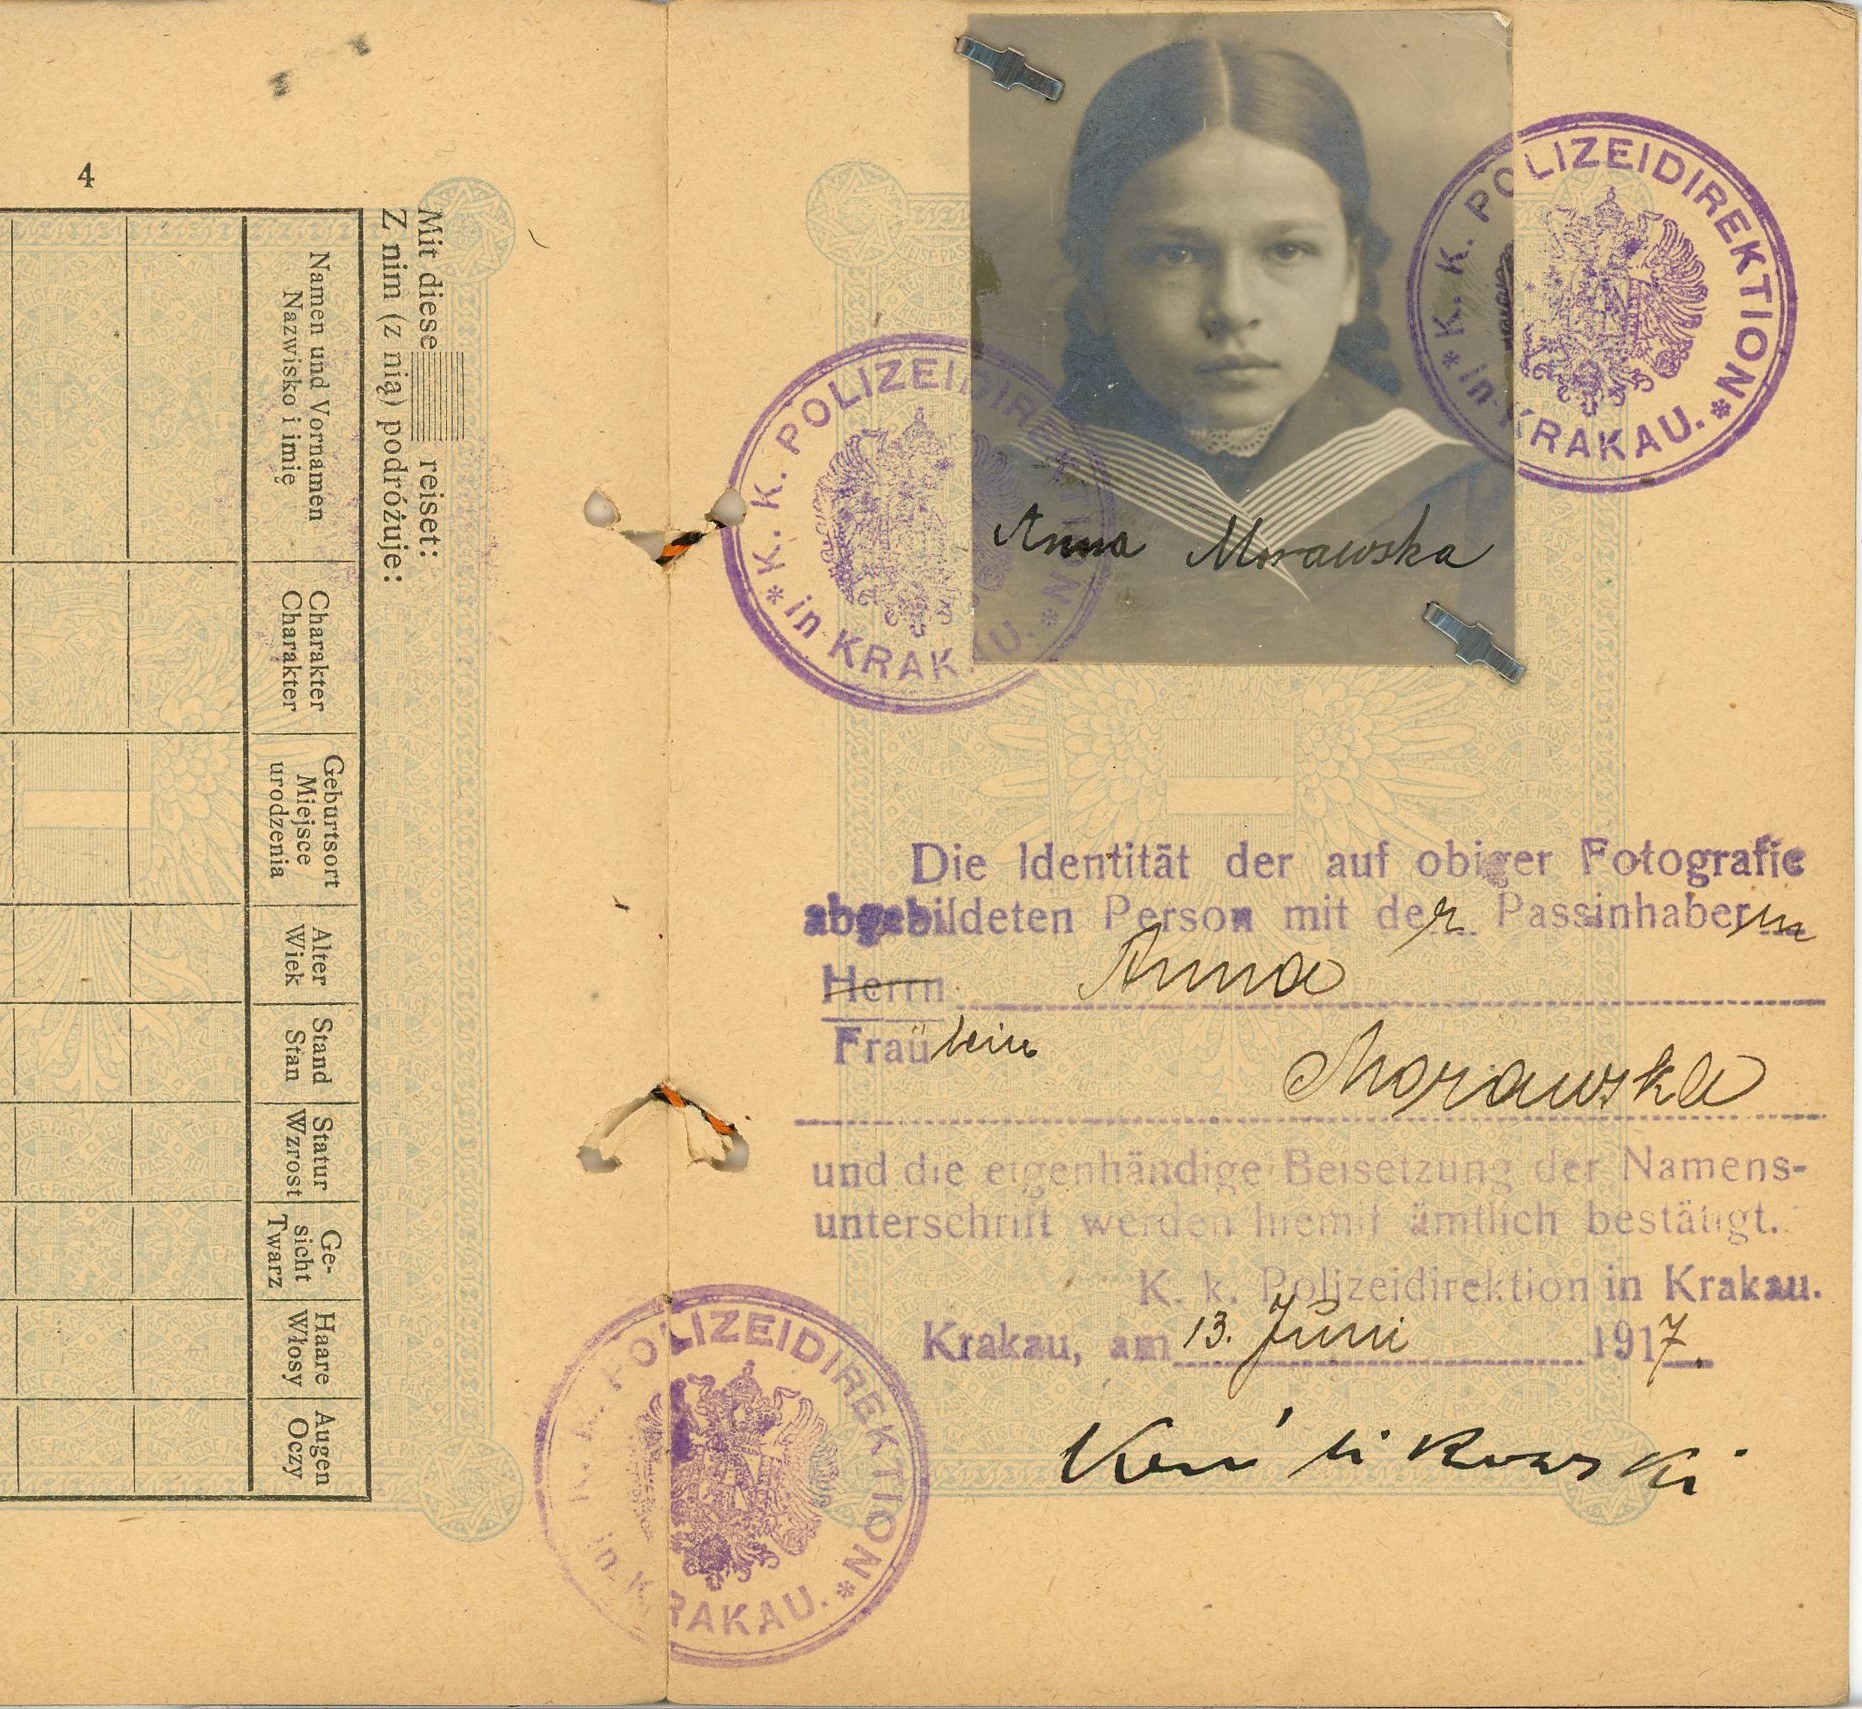 4
Mit diese reiset:
Z nim (z nią) podróżuje:
Namen und Vornamen
Nazwisko i imię
Charakter
Charakter
Geburtsort
Miejsce
urodzenia
Alter
Wiek
Stand
Stan
Statur
Wzrost
Ge-
sicht
Twarz
Haare
Włosy
Augen
Oczy
K. K. POLIZEIDIREKTION
* in KRAKAU. *
K. K. POLIZEIDIREKTION
* in KRAKAU. *
Anna Morawska
Die Identität der auf obiger Fotografie
abgebildeten Person mit der Passinhaberin
Herrn Anna
Fräulein Morawska
und die eigenhändige Beisetzung der Namens-
unterschrift werden hiemit ämtlich bestätigt.
K. k. Polizeidirektion in Krakau.
Krakau, am 13. Juni 1917.
K. K. POLIZEIDIREKTION
in KRAKAU. *